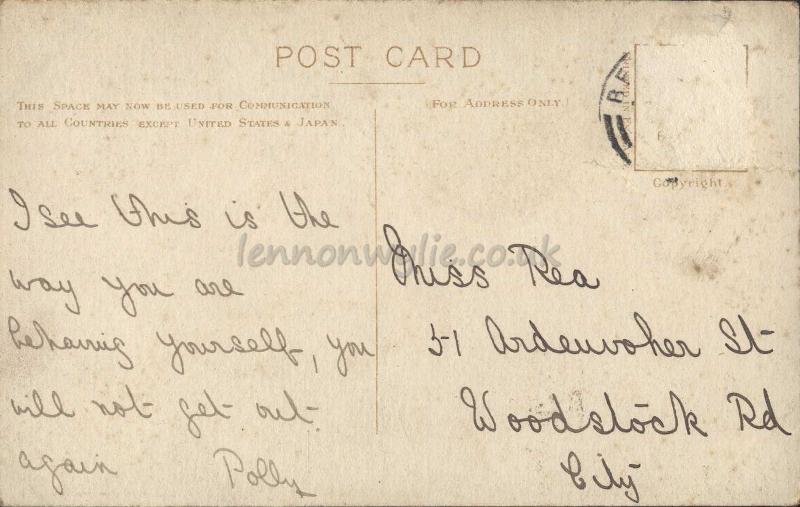 POST CARD
THIS SPACE MAY NOW BE USED FOR COMMUNICATION
TO ALL COUNTRIES EXCEPT UNITED STATES & JAPAN.
FOR ADDRESS ONLY.
Copyright.
I see this is the
way you are
behaving yourself, you
will not get out
again Polly
Miss Rea
51 Ardenvoher St
Woodstock Rd
City
lennonwylie.co.uk